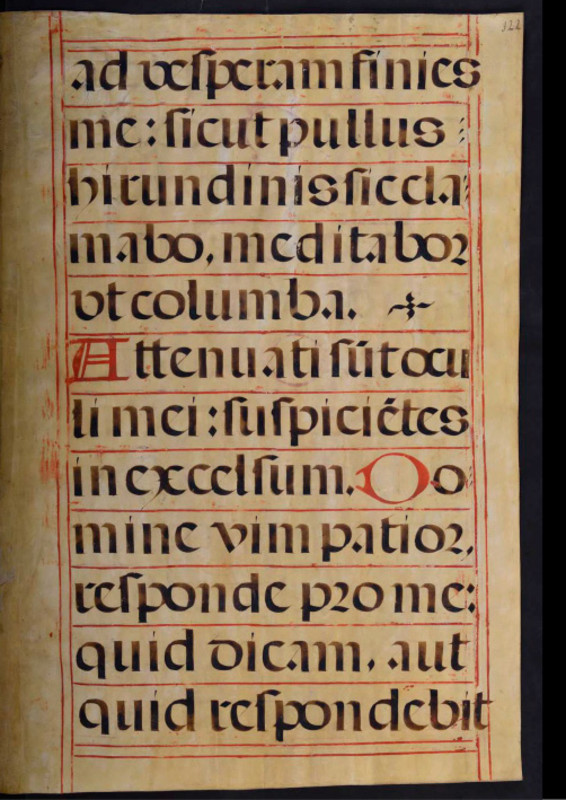 122
ad vesperam finies
me: sicut pullus
hirundinis sic cla
mabo, meditabor
vt columba.
Attenuati sūt ocu
li mei: suspiciētes
in excelsum. Do
mine vim patior,
responde pro me:
quid dicam, aut
quid respondebit